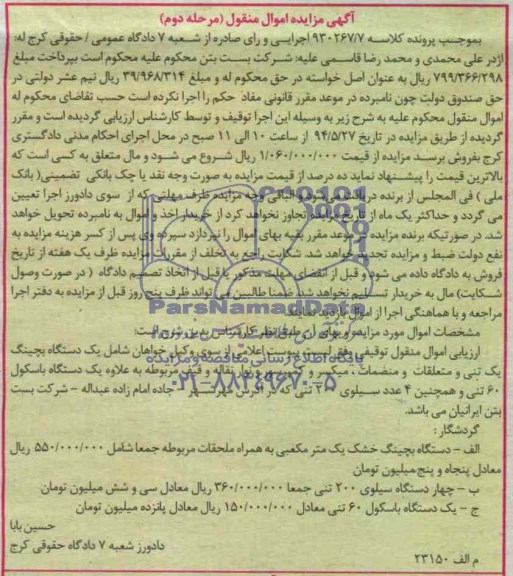 آگهی مزایده اموال منقول (مرحله دوم)
بموجب پرونده کلاسه ۹۳۰۲۶۷/۷ اجرایی و رای صادره از شعبه ۷ دادگاه عمومی / حقوقی کرج له:
اژدر علی محمدی و محمد رضا قاسمی علیه: شرکت بست بتن محکوم علیه محکوم است بپرداخت مبلغ
۷۹۹/۳۶۶/۲۹۸ ریال به عنوان اصل خواسته در حق محکوم له و مبلغ ۳۹/۹۶۸/۳۱۴ ریال نیم عشر دولتی در
حق صندوق دولت چون نامبرده در موعد مقرر قانونی مفاد حکم را اجرا نکرده است حسب تقاضای محکوم له
اموال منقول محکوم علیه به شرح زیر به وسیله این اجرا توقیف و توسط کارشناس ارزیابی گردیده است و مقرر
گردیده از طریق مزایده در تاریخ ۹۴/۵/۲۷ از ساعت ۱۰ الی ۱۱ صبح در محل اجرای احکام مدنی دادگستری
کرج بفروش برسد مزایده از قیمت ۱/۰۶۰/۰۰۰/۰۰۰ ریال شروع می شود و مال متعلق به کسی است که
بالاترین قیمت را پیشنهاد نماید ده درصد از قیمت مزایده به صورت وجه نقد یا چک بانکی تضمینی( بانک
ملی ) فی المجلس از برنده دریافت می شود و الباقی وجه مزایده ظرف مهلتی که از سوی دادورز اجرا تعیین
می گردد و حداکثر یک ماه از تاریخ مزایده تجاوز نخواهد کرد از خریدار اخذ و اموال به نامبرده تحویل خواهد
شد. در صورتیکه برنده مزایده در موعد مقرر بقیه بهای اموال را نپردازد سپرده وی پس از کسر هزینه مزایده به
نفع دولت ضبط و مزایده تجدید خواهد شد. شکایت راجع به تخلف از مقررات مزایده ظرف یک هفته از تاریخ
فروش به دادگاه داده می شود و قبل از انقضای مهلت مذکور یا قبل از اتخاذ تصمیم دادگاه ( در صورت وصول
شکایت) مال به خریدار تسلیم نخواهد شد ضمنا طالبین می تواند ظرف پنج روز قبل از مزایده به دفتر اجرا
مراجعه و با هماهنگی اجرا از اموال بازدید نمایند.
مشخصات اموال مورد مزایده و بهای آن طبق نظر کارشناس بدین شرح است:
ارزیابی اموال منقول توقیفی وفق لیست پیوست اعلامی از سوی وکیل خواهان شامل یک دستگاه بچینگ
یک تنی و متعلقات و منضمات ، میکسر و کمپرسور و نوار نقاله و قیف مربوطه به علاوه یک دستگاه باسکول
۶۰ تنی و همچنین ۴ عدد سیلوی ۲۰۰ تنی که در آدرس مهرشهر جاده امام زاده عبداله – شرکت بست
بتن ایرانیان می باشد.
گردشکار:
الف – دستگاه بچینگ خشک یک متر مکعبی به همراه ملحقات مربوطه جمعا شامل ۵۵۰/۰۰۰/۰۰۰ ریال
معادل پنجاه و پنج میلیون تومان
ب – چهار دستگاه سیلوی ۲۰۰ تنی جمعا ۳۶۰/۰۰۰/۰۰۰ ریال معادل سی و شش میلیون تومان
ج – یک دستگاه باسکول ۶۰ تنی معادل ۱۵۰/۰۰۰/۰۰۰ ریال معادل پانزده میلیون تومان
حسین بابا
دادورز شعبه ۷ دادگاه حقوقی کرج
م الف ۲۳۱۵۰
ParsNamadData
پایگاه اطلاع رسانی مناقصه و مزایده
۰۲۱-۸۸۳۴۹۶۷۰-۵